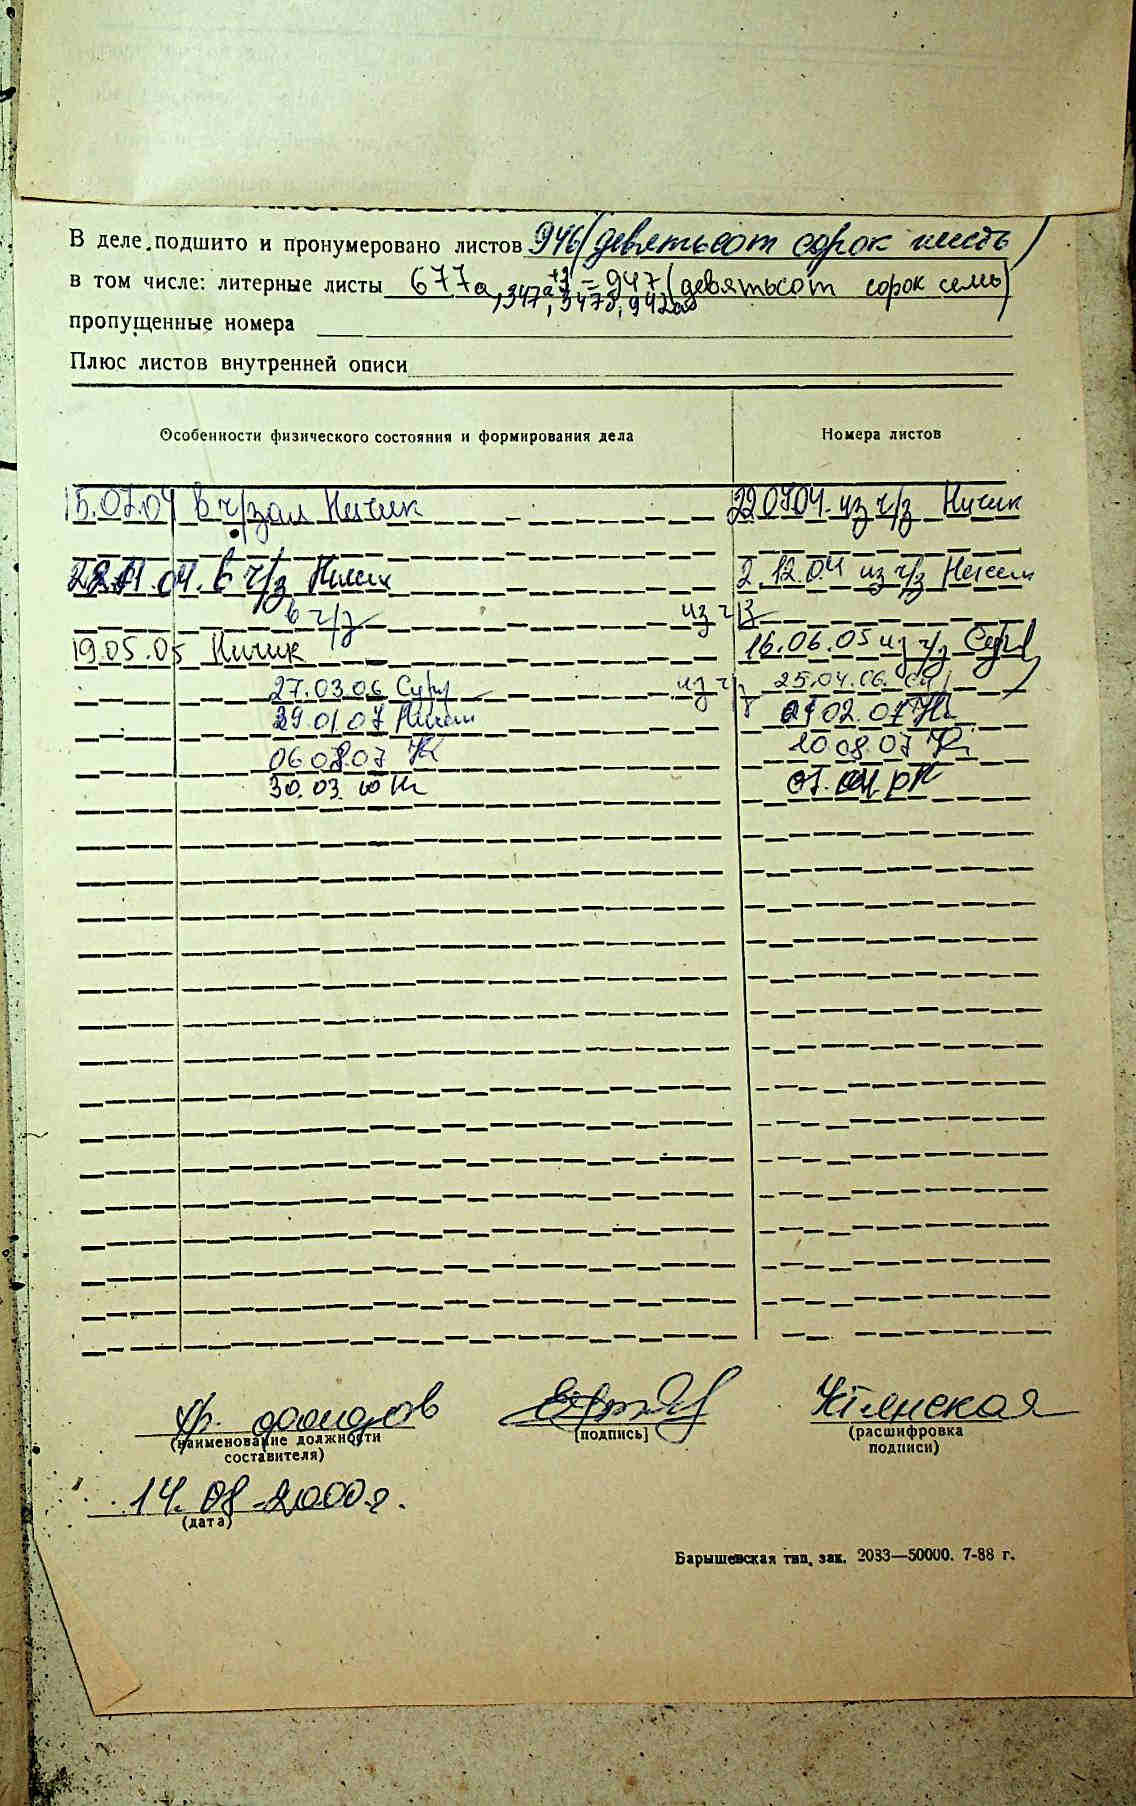 В деле подшито и пронумеровано листов 946 (девятьсот сорок шесть)
в том числе: литерные листы 677а +3 = 947 (девятьсот сорок семь)
, 347а, 347б, 942а
пропущенные номера
Плюс листов внутренней описи
Особенности физического состояния и формирования дела Номера листов
15.07.04 в ч/зал Ничик 22.07.04. из ч/з Ничик
.04. в ч/з Ничик 2.12.04 из ч/з Ничик
в ч/з из ч/з
19.05.05 Ничик 16.06.05 из ч/з
27.03.06 из ч/з 25.04.06.
29.01.07 Ничик 02.07
06.08.07 10.08.07
30.03.10
фондов Устянская
(наименование должности (подпись) (расшифровка
составителя) подписи)
14.08.2000г.
(дата)
Барышевская тип, зак. 2033—50000. 7-88 г.